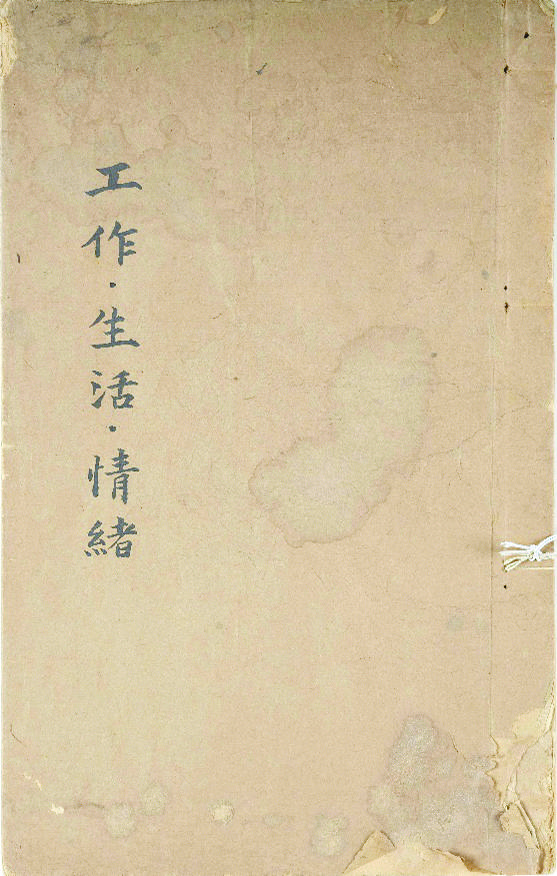 工作·生活·情緒